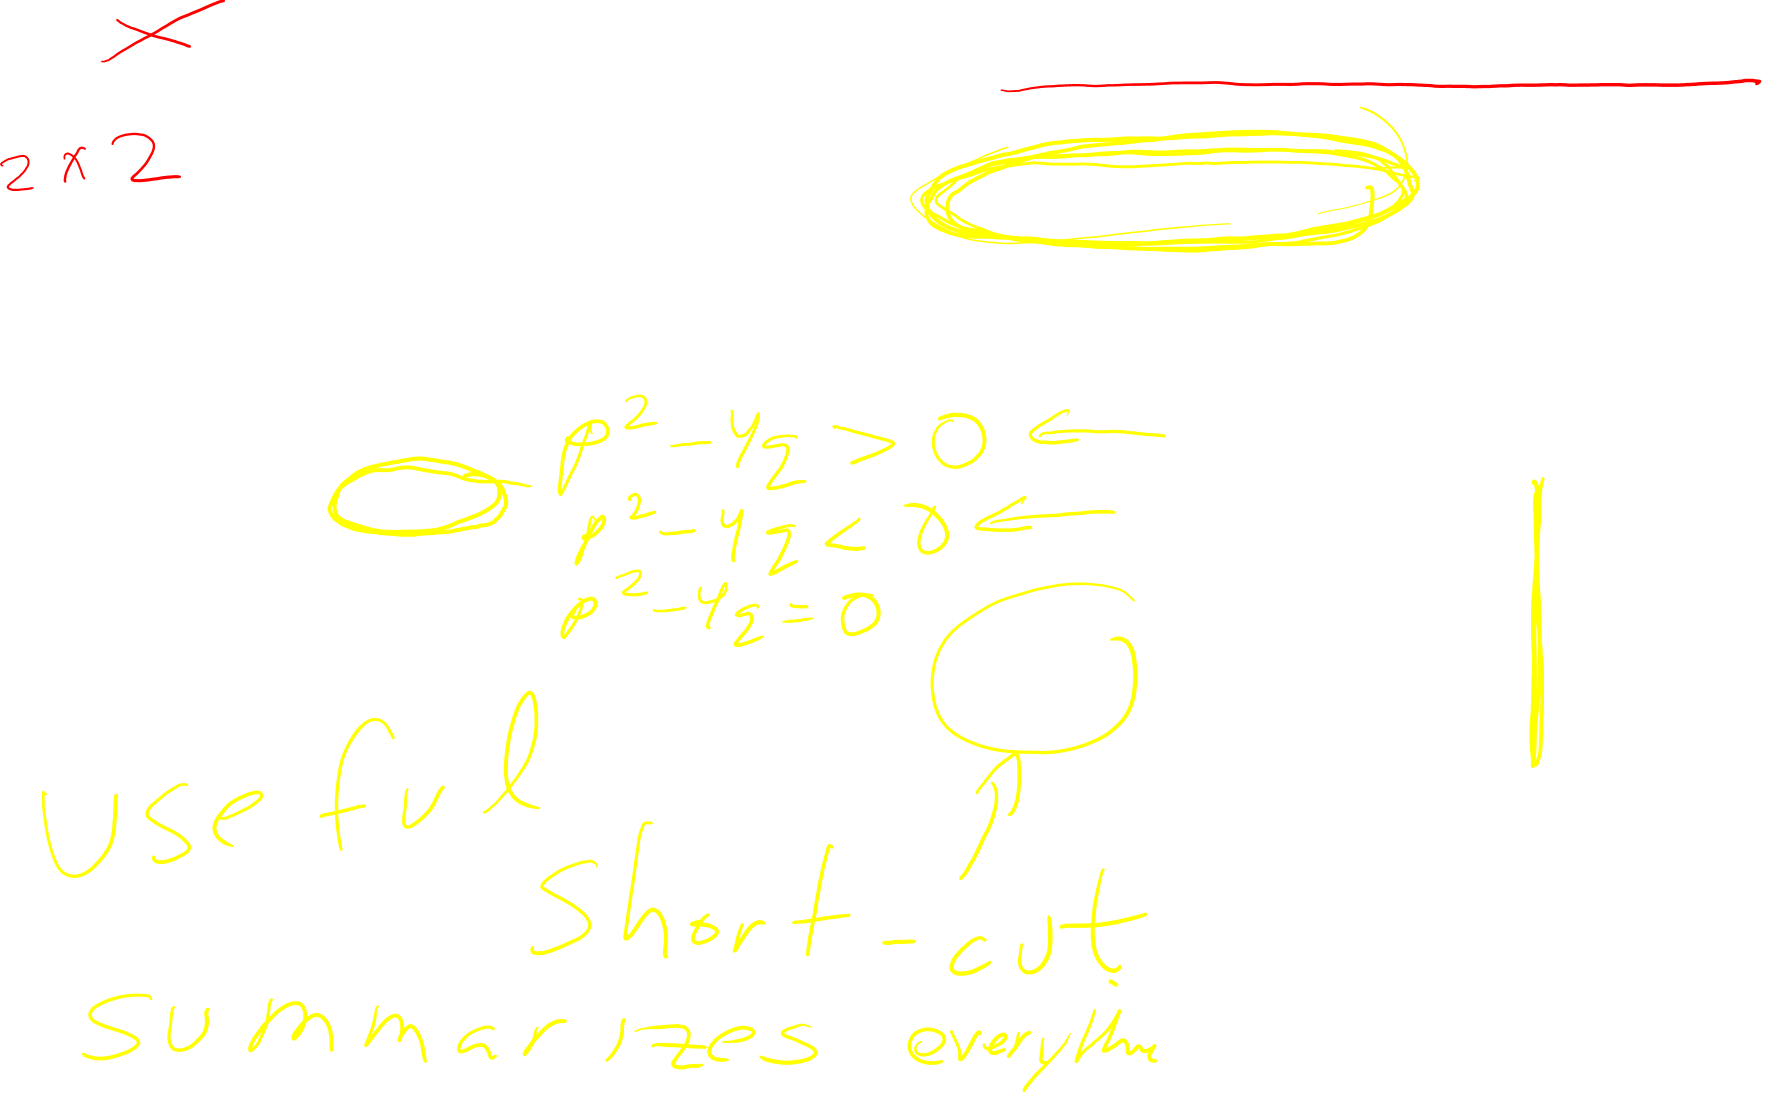 2 x 2
p² - 4q > 0 ←
p² - 4q < 0 ←
p² - 4q = 0
useful
short-cut
summarizes everythin